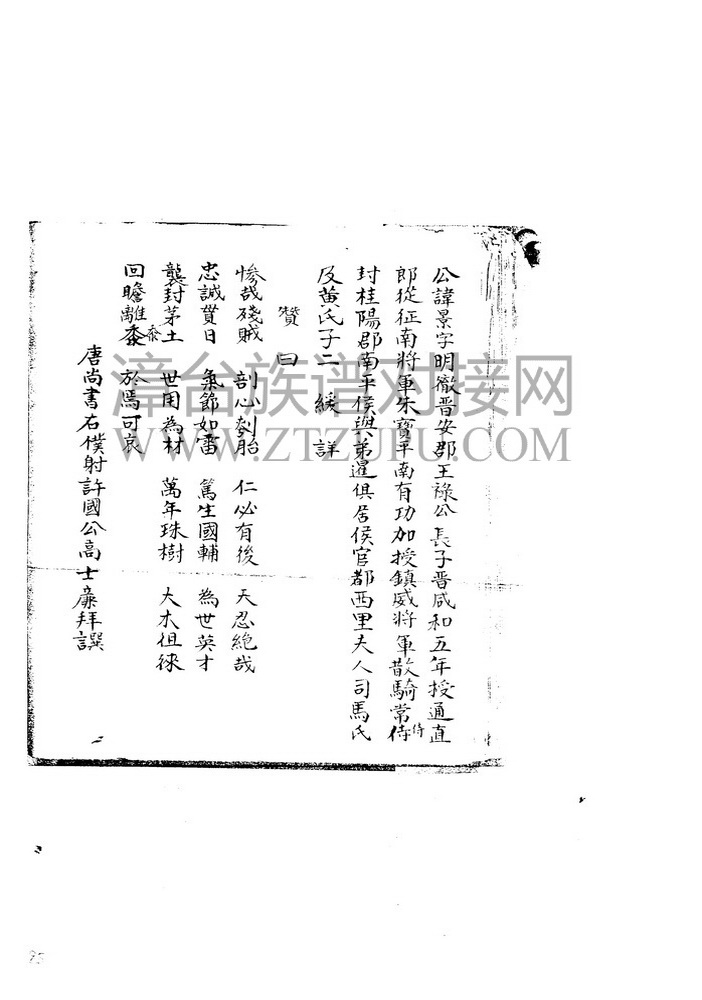 公諱景字明徹晋安郡王祿公長子晋咸和五年授通直
郎從征南將軍朱寶平南有功加授鎮威將軍散騎常侍
侍
封桂陽郡南平侯與弟暹俱居侯官都西里夫人司馬氏
及黃氏子二緩詳
贊曰
慘哉殘賊 剖心刳胎 仁必有後 天忍絕哉
忠誠貫日 氣節如雷 篤生國輔 為世英才
襲封茅土 世用為材 萬年珠樹 大木徂徠
回瞻離黍 於焉可哀
黍
唐尚書右僕射許國公高士廉拜譔
漳台族谱对接网
WWW.ZTZUPU.COM